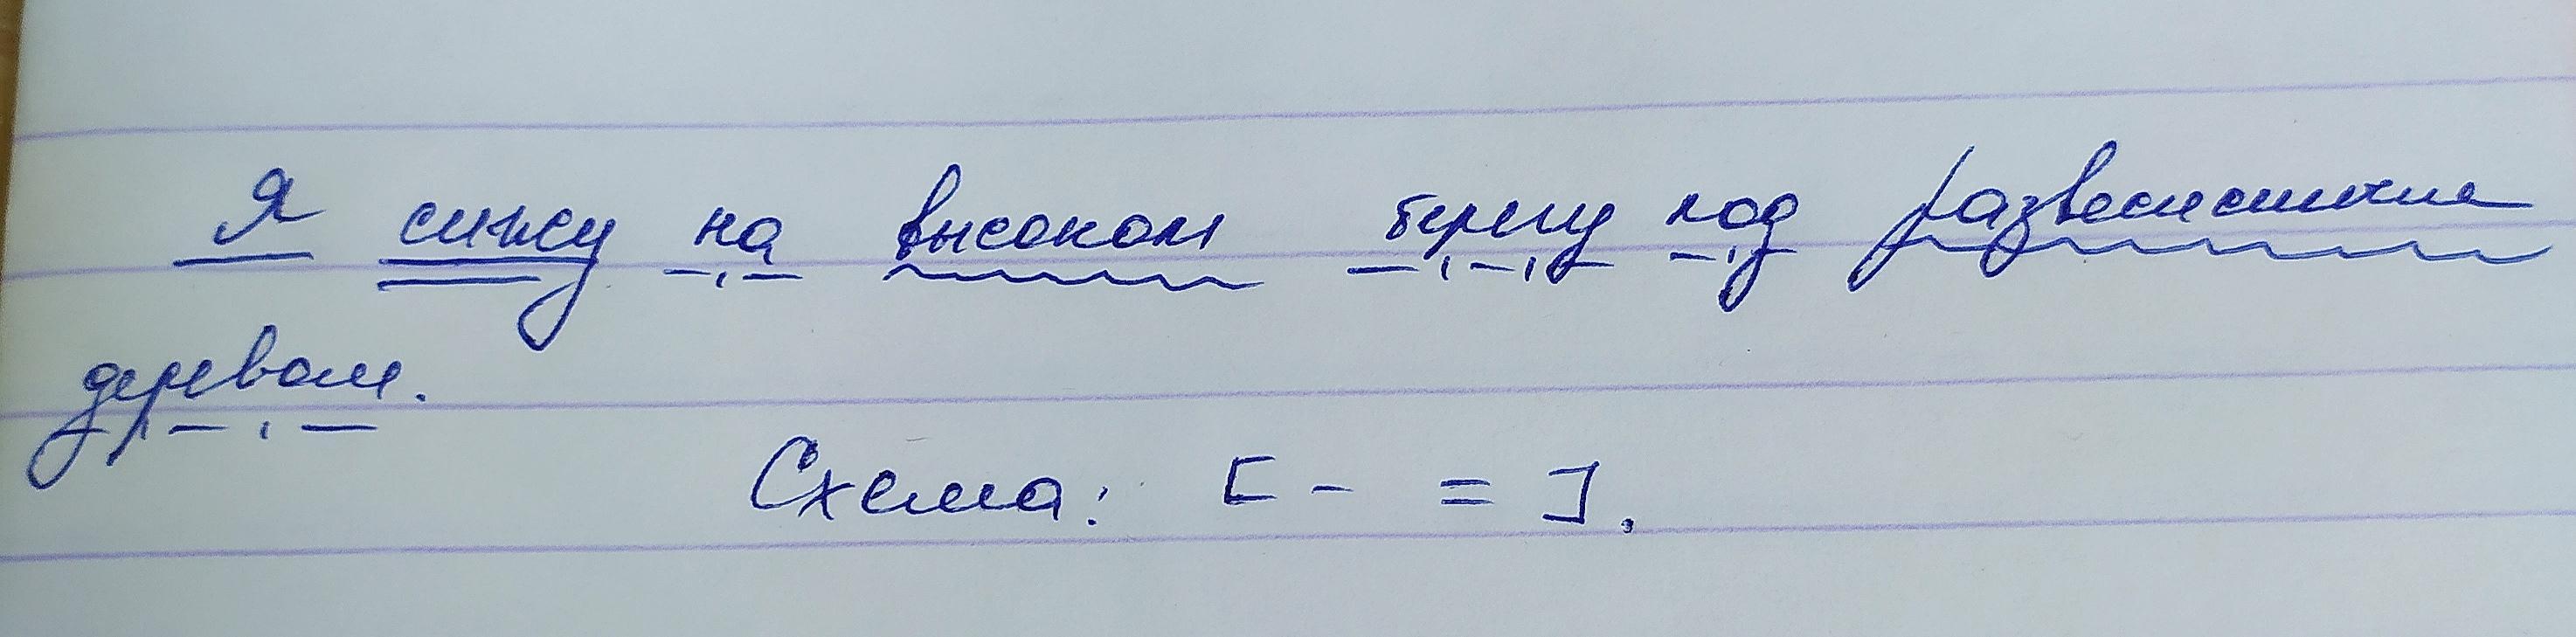 Я сижу на высоком берегу под развесистым
деревом.
Схема: [ - = ].